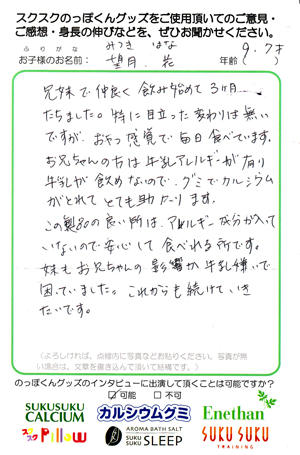 スクスクのっぽくんグッズをご使用頂いてのご意見・
ご感想・身長の伸びなどを、ぜひお聞かせください。
ふりがな みつき はな
お子様のお名前: 望月 花 年齢( 9.7才 )
兄妹で仲良く飲み始めて3ヶ月
たちました。特に目立った変わりは無い
ですが、おやつ感覚で毎日食べています。
お兄ちゃんの方は牛乳アレルギーが有り
牛乳が飲めないので、グミでカルシウム
がとれてとても助かります。
この製品の良い所は、アレルギー成分が入って
いないので安心して食べれる所です。
妹もお兄ちゃんの影響か牛乳嫌いで
困っていました。これからも続けていき
たいです。
(よろしければ、点線内に写真などお貼りください。写真が無
い場合は、文章を書き込んで頂いて結構です。)
のっぽくんグッズのインタビューに出演して頂くことは可能ですか?
☑可能 □不可
SUKUSUKU CALCIUM カルシウムグミ Enethan
スクスク Pillow AROMA BATH SALT SUKU SUKU SLEEP SUKU SUKU TRAINING